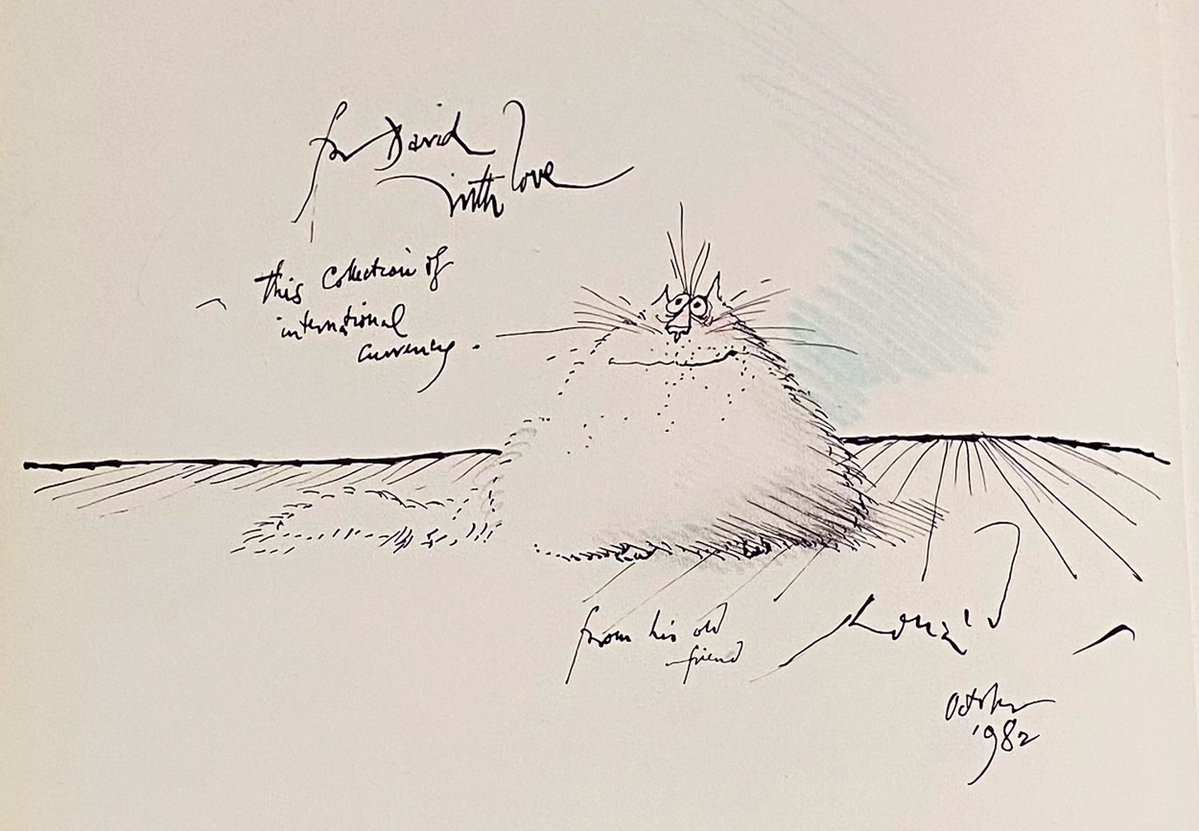 for David
with love
this collection of
international
currency.
from his old
friend
Ronald
October
1982